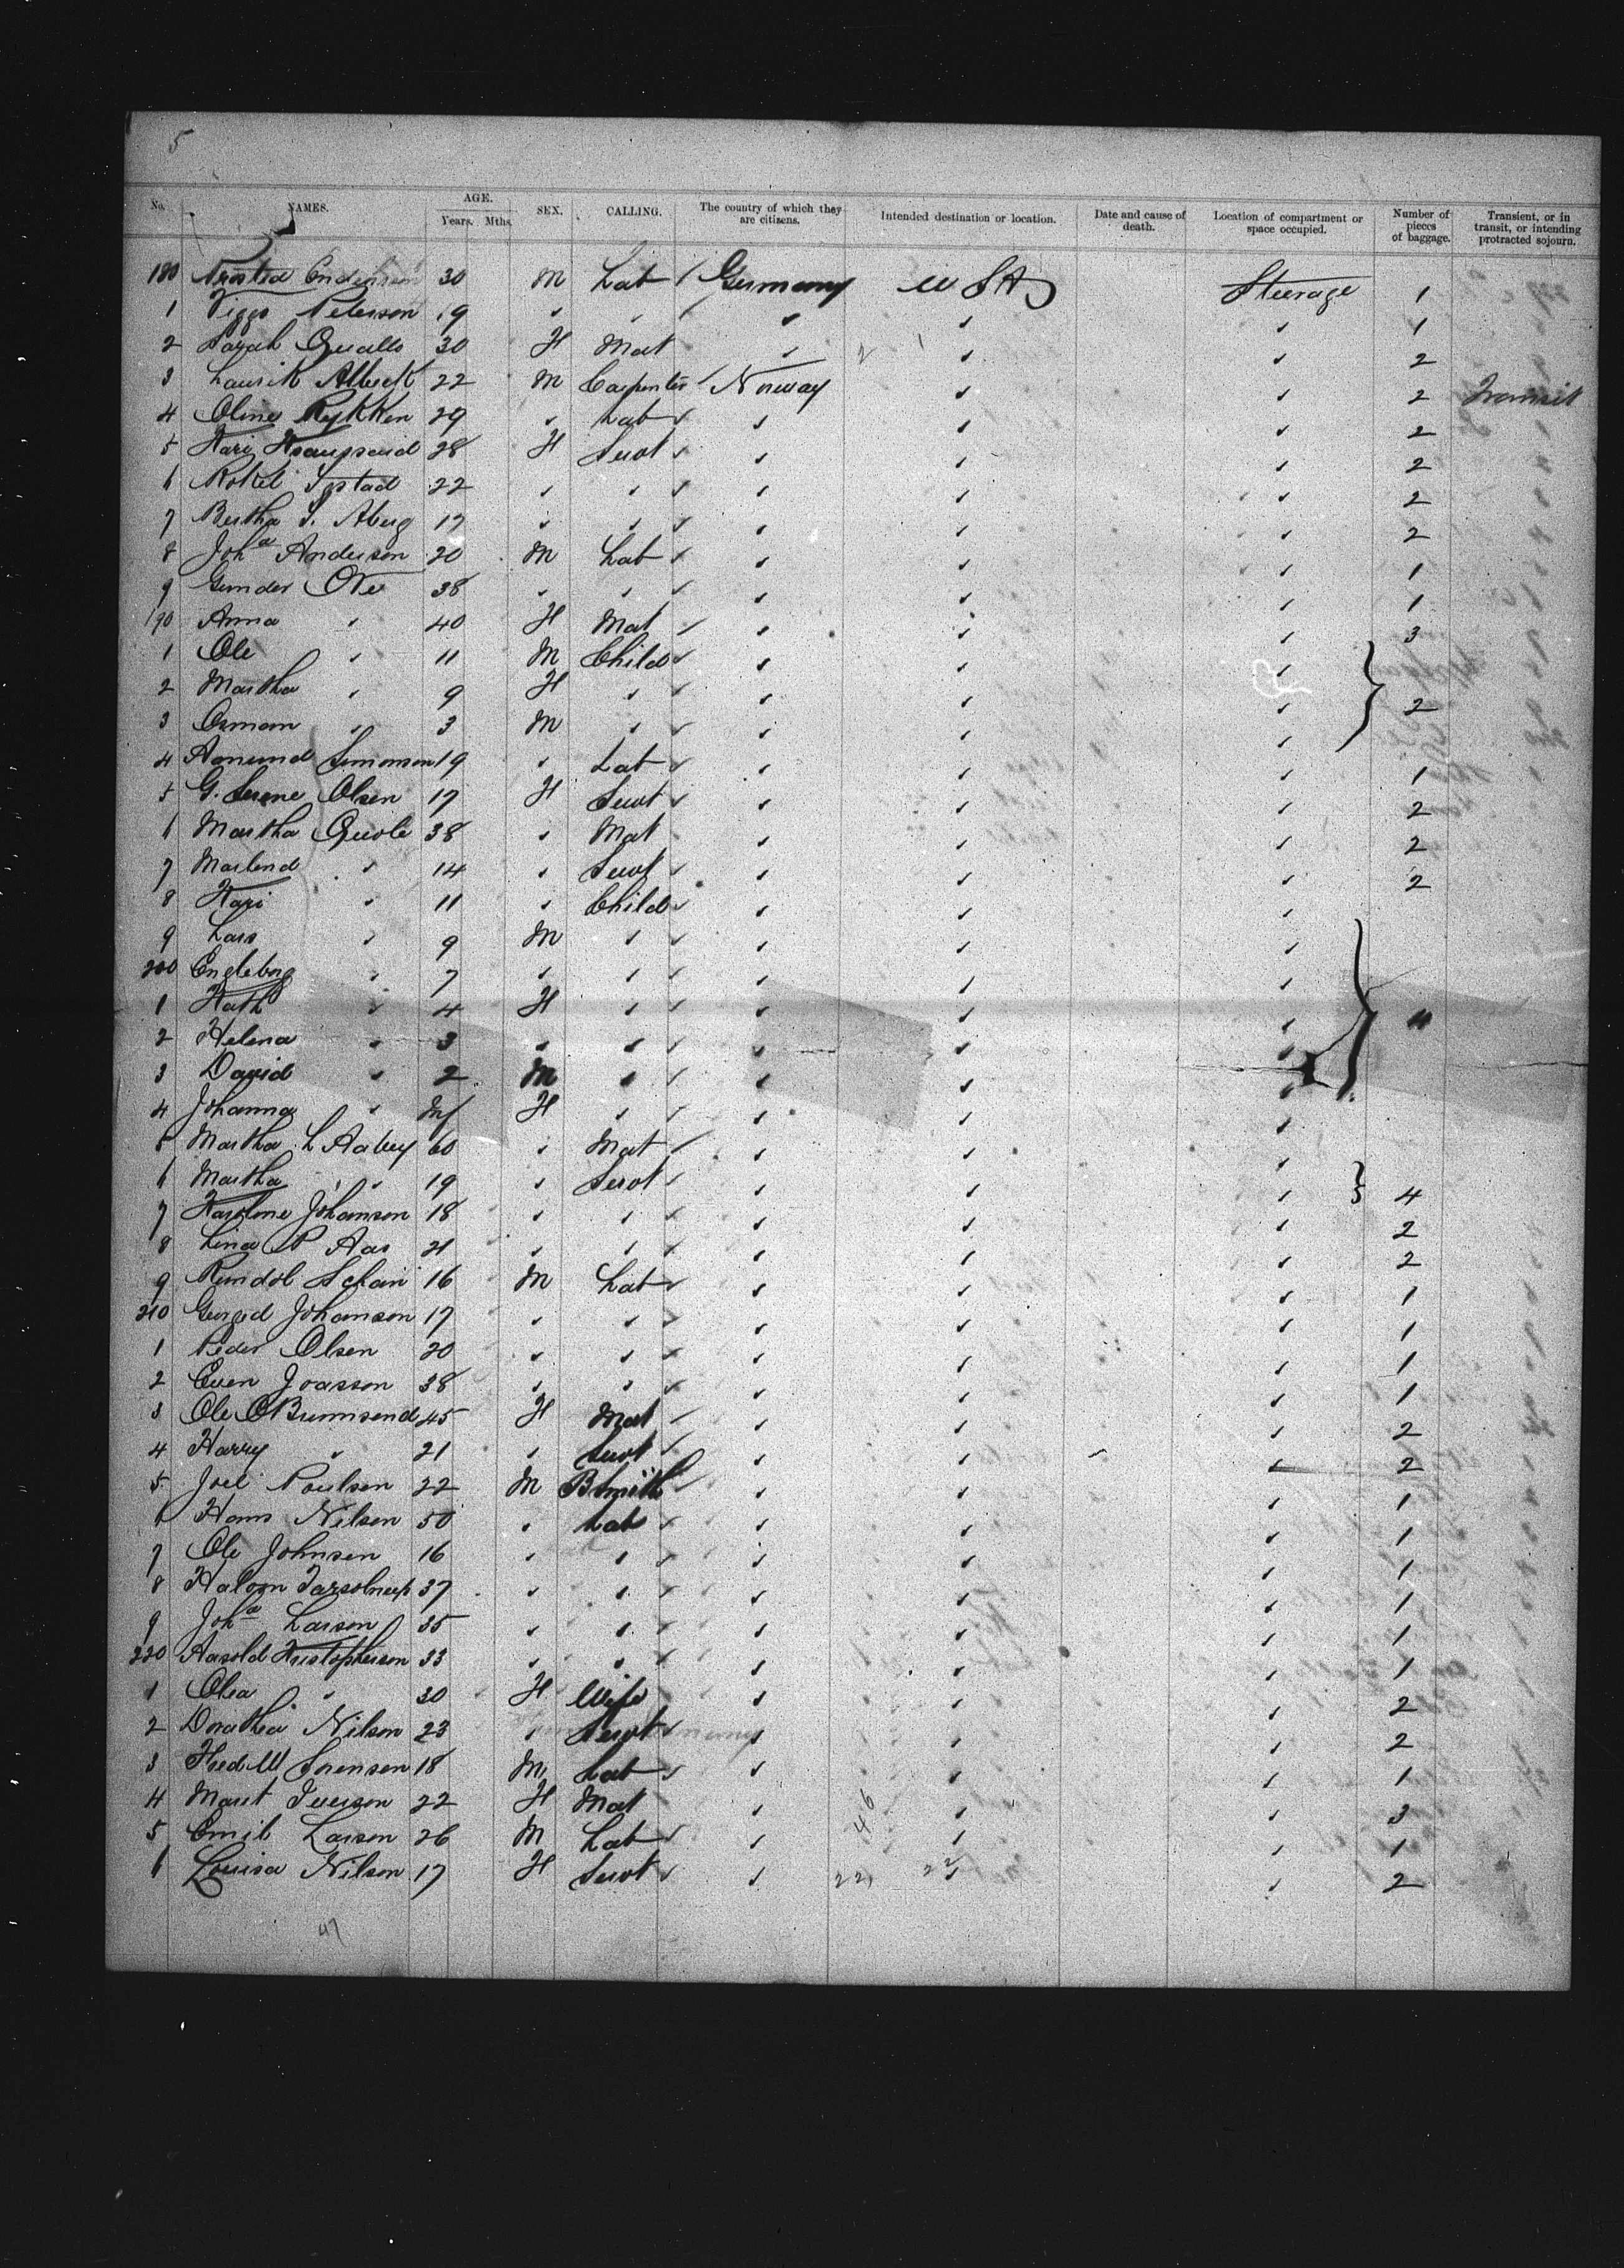 5
No. NAMES. AGE. Years. Mths. SEX. CALLING. The country of which they are citizens. Intended destination or location. Date and cause of death. Location of compartment or space occupied. Number of pieces of baggage. Transient, or in transit, or intending protracted sojourn.
180 30 M Lab Germany U S A Steerage 1
1 Viggo Peterson 19 " " " " " 1
2 Sarah Qualls 30 H Mat " " " 2
3 Laurik Albeck 22 M Carpenter Norway " " 2 Transit
4 Oline Rykken 29 " Lab " " " 2
5 Kari 28 H Servt " " " 2
6 22 " " " " " 2
7 Bertha S. Aberg 17 " " " " " 2
8 Joha Anderson 20 M Lab " " " 1
9 Gunder 38 " " " " " 1
190 Anna " 40 H Mat " " " 3
1 Ole " 11 M Child " " "
2 Martha " 9 H " " " " 2
3 Osmon " 3 M " " " "
4 Amund Simonson 19 " Lab " " " 1
5 G. Serene Olsen 17 H Servt " " " 2
6 Martha Quole 38 " Mat " " " 2
7 " 14 " Servt " " " 2
8 Kari " 11 " Child " " "
9 Lars " 9 M " " " "
200 Engleborg " 7 " " " " "
1 Kath " 4 H " " " "
2 Helena " 3 " " " " "
3 David " 2 M " " " "
4 Johanna " Inf H " " " "
5 Martha L Aabey 60 " Mat " " "
6 Martha " " 19 " Servt " " " 4
7 Karoline Johanson 18 " " " " " 2
8 Lina P Aas 21 " " " " " 2
9 16 M Lab " " " 1
210 Johanson 17 " " " " " 1
1 Peder Olsen 20 " " " " " 1
2 Even Joasson 38 " " " " " 1
3 Ole O 45 H Mat " " " 2
4 Harry " 21 " Servt " " " 2
5 Joel Poulsen 22 M B Smith " " " 1
6 Hans Nilsen 50 " Lab " " " 1
7 Ole Johnsen 16 " " " " " 1
8 37 " " " " " 1
9 Joha Larson 35 " " " " " 1
220 Aasold Kristopherson 33 " " " " " 1
1 Olea " 30 H Wife " " " 2
2 Dorathea Nilson 23 " Servt " " " 2
3 Fred W Sorensen 18 M Lab " " " 1
4 Marit Iverson 22 H Mat " " " 3
5 Emil Larson 26 M Lab " " " 1
6 Louisa Nilson 17 H Servt " " " 2
47